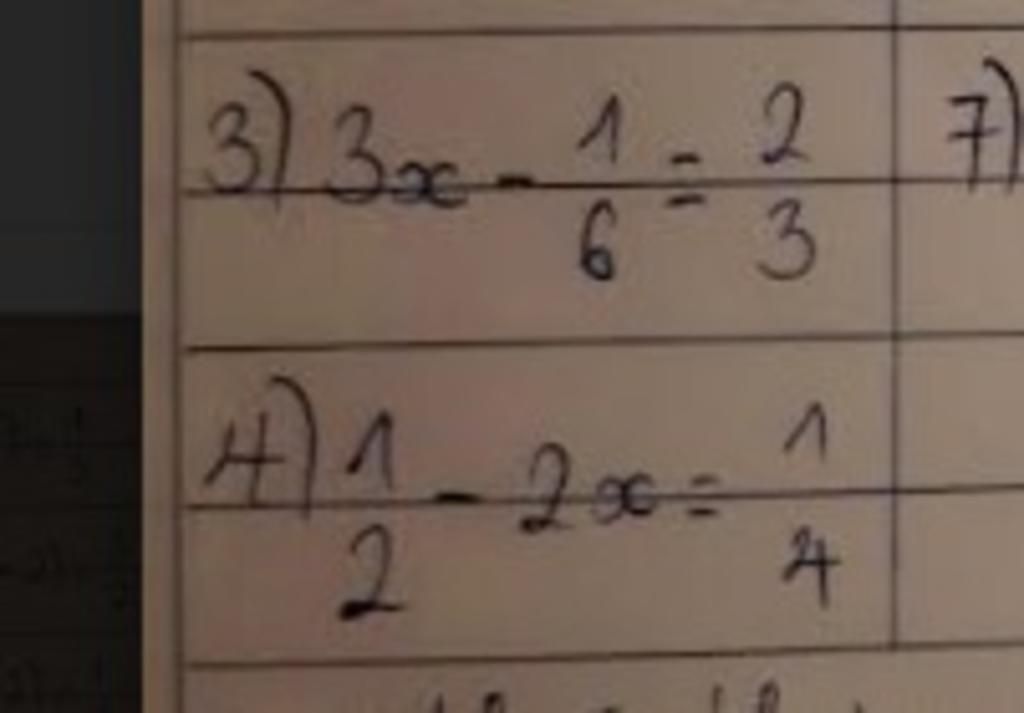 3) 3x - 1/6 = 2/3
7)
4) 1/2 - 2x = 1/4